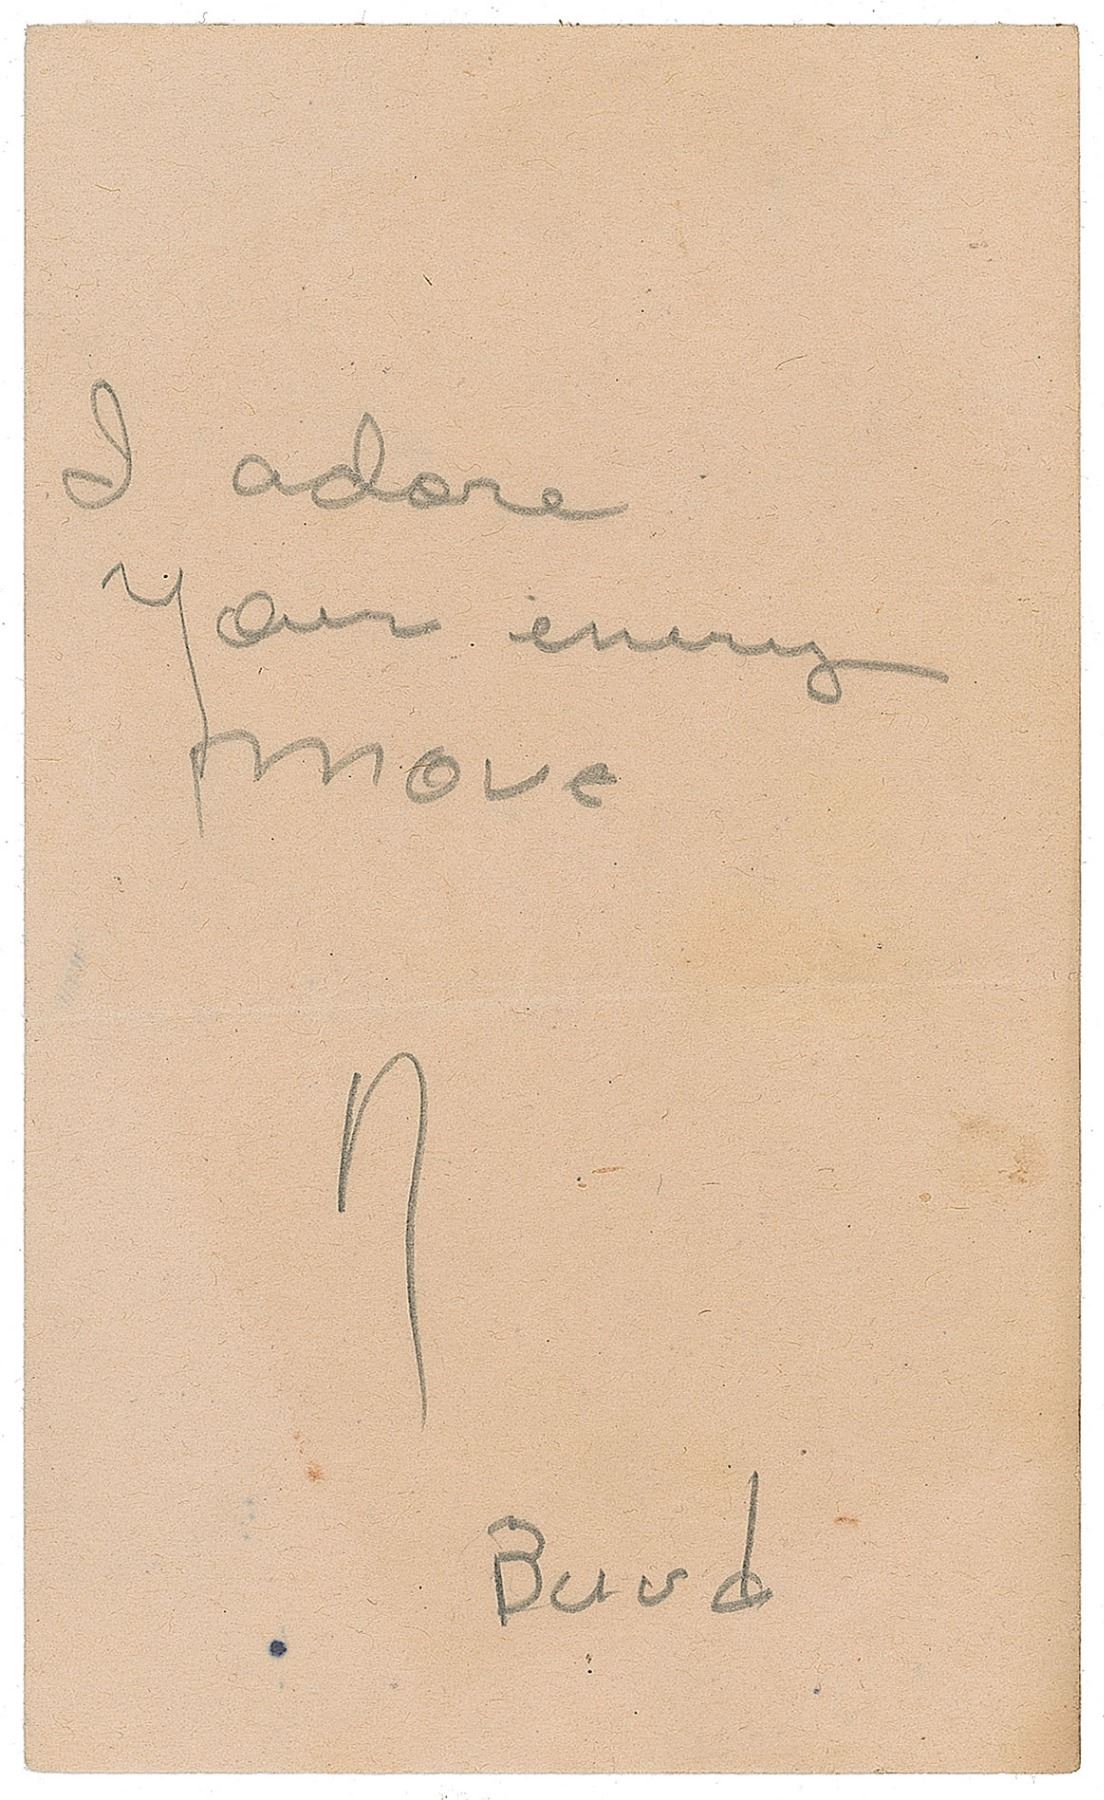 I adore
your every
move
Burd